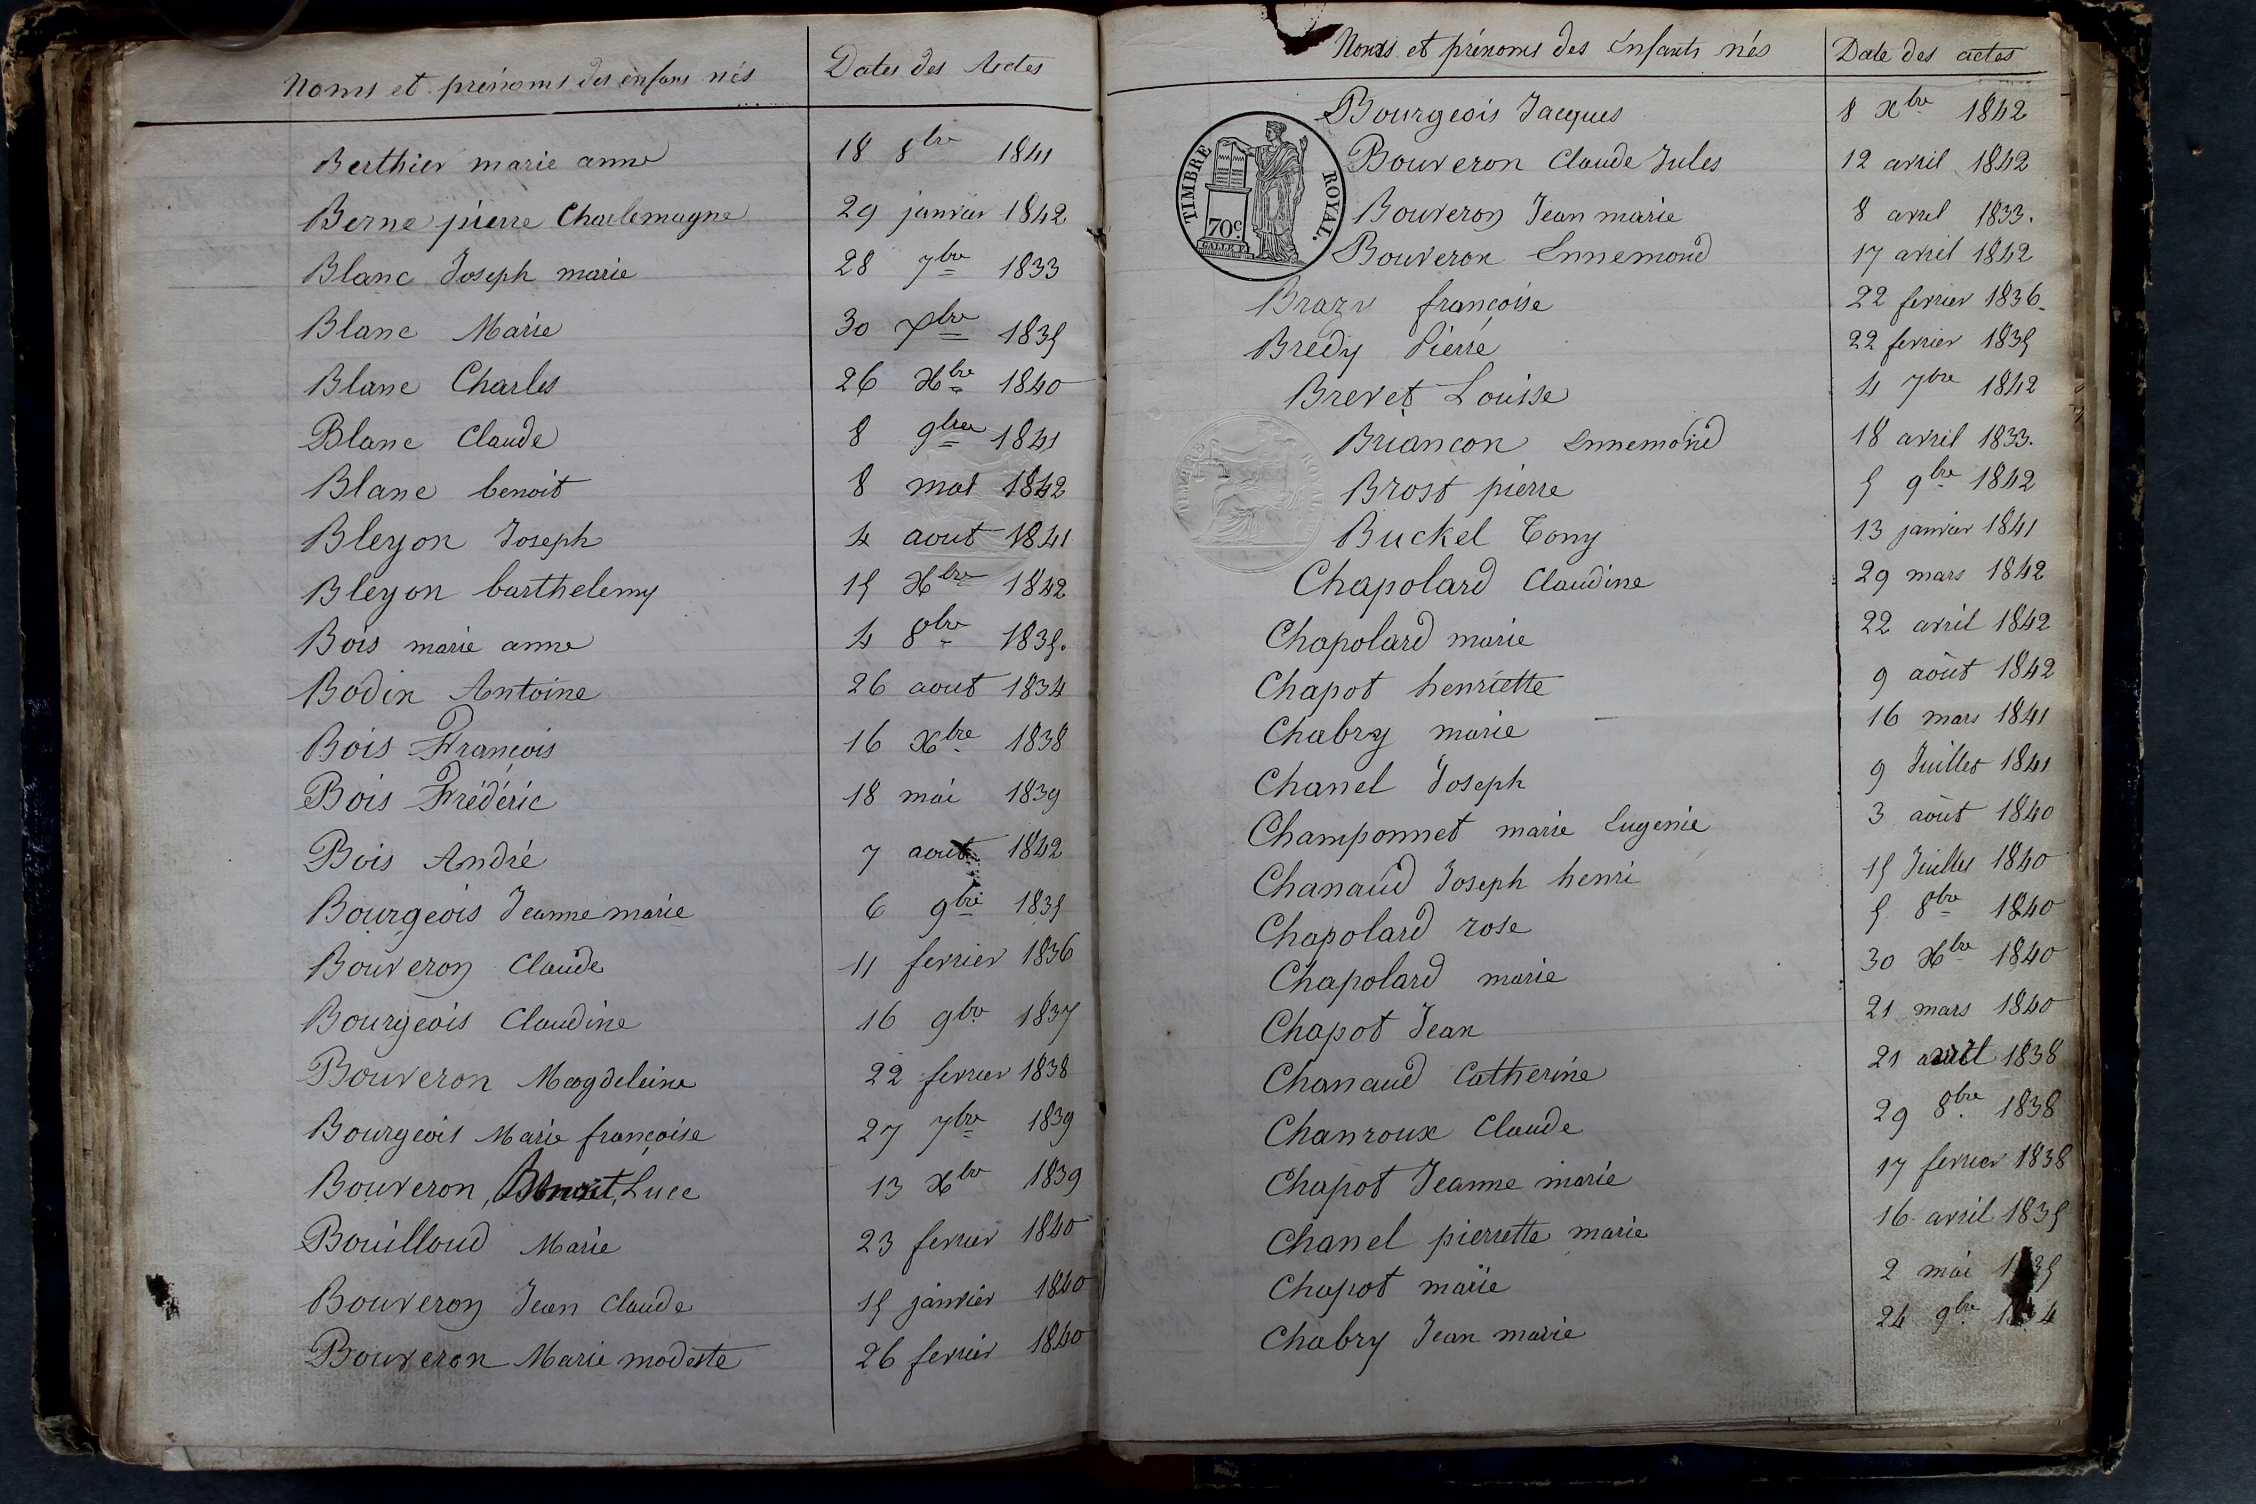 Noms et prénoms des enfans nés Dates des Actes
Berthier marie anne 18 8bre 1841
Berne pierre Charlemagne 29 janvier 1842
Blanc Joseph marie 28 7bre 1833
Blanc Marie 30 1835
Blanc Charles 26 Xbre 1840
Blanc Claude 8 9bre 1841
Blanc benoit 8 mai 1842
Bleyon Joseph 4 aout 1841
Bleyon barthelemy 15 Xbre 1842
Bois marie anne 4 8bre 1835.
Bodin Antoine 26 aout 1834
Bois François 16 Xbre 1838
Bois Frédéric 18 mai 1839
Bois André 7 aout 1842
Bourgeois Jeanne marie 6 9bre 1835
Bouveron Claude 11 fevrier 1836
Bourgeois Claudine 16 9bre 1837
Bouveron Magdeleine 22 fevrier 1838
Bourgeois Marie françoise 27 7bre 1839
Bouveron Benoit, Luce 13 Xbre 1839
Bouilloud Marie 23 fevrier 1840
Bouveron Jean Claude 15 janvier 1840
Bouveron Marie modeste 26 fevrier 1840
Noms et prénoms des Enfants nés Date des actes
Bourgeois Jacques 8 Xbre 1842
Bouveron Claude Jules 12 avril 1842
Bouveron Jean marie 8 avril 1833.
Bouveron Ennemond 17 avril 1842
TIMBRE ROYAL.
70c.
Brazv françoise 22 fevrier 1836
Bredy Pierre 22 fevrier 1835
Brevet Louise 4 7bre 1842
Briancon Ennemond 18 avril 1833.
Brost pierre 5 9bre 1842
Buckel Tony 13 janvier 1841
Chapolard Claudine 29 mars 1842
Chapolard marie 22 avril 1842
Chapot henriette 9 août 1842
Chabry marie 16 mars 1841
Chanel Joseph 9 Juillet 1841
Champonnet marie Eugenie 3 août 1840
Chanaud Joseph henri 15 Juillet 1840
Chapolard rose 5 8bre 1840
Chapolard marie 30 Xbre 1840
Chapot Jean 21 mars 1840
Chanaud Catherine 21 avril 1838
Chanroux Claude 29 8bre 1838
Chapot Jeanne marie 17 fevrier 1838
Chanel pierrette marie 16 avril 1835
Chapot marie 2 mai 1835
Chabry Jean marie 24 9bre 1834